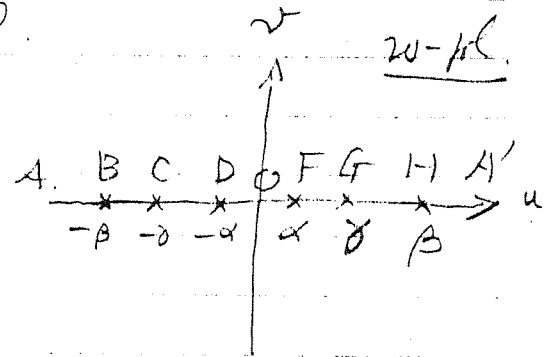 v
w-pl.
A. B C D O F G H A' u
-β -γ -α α γ β